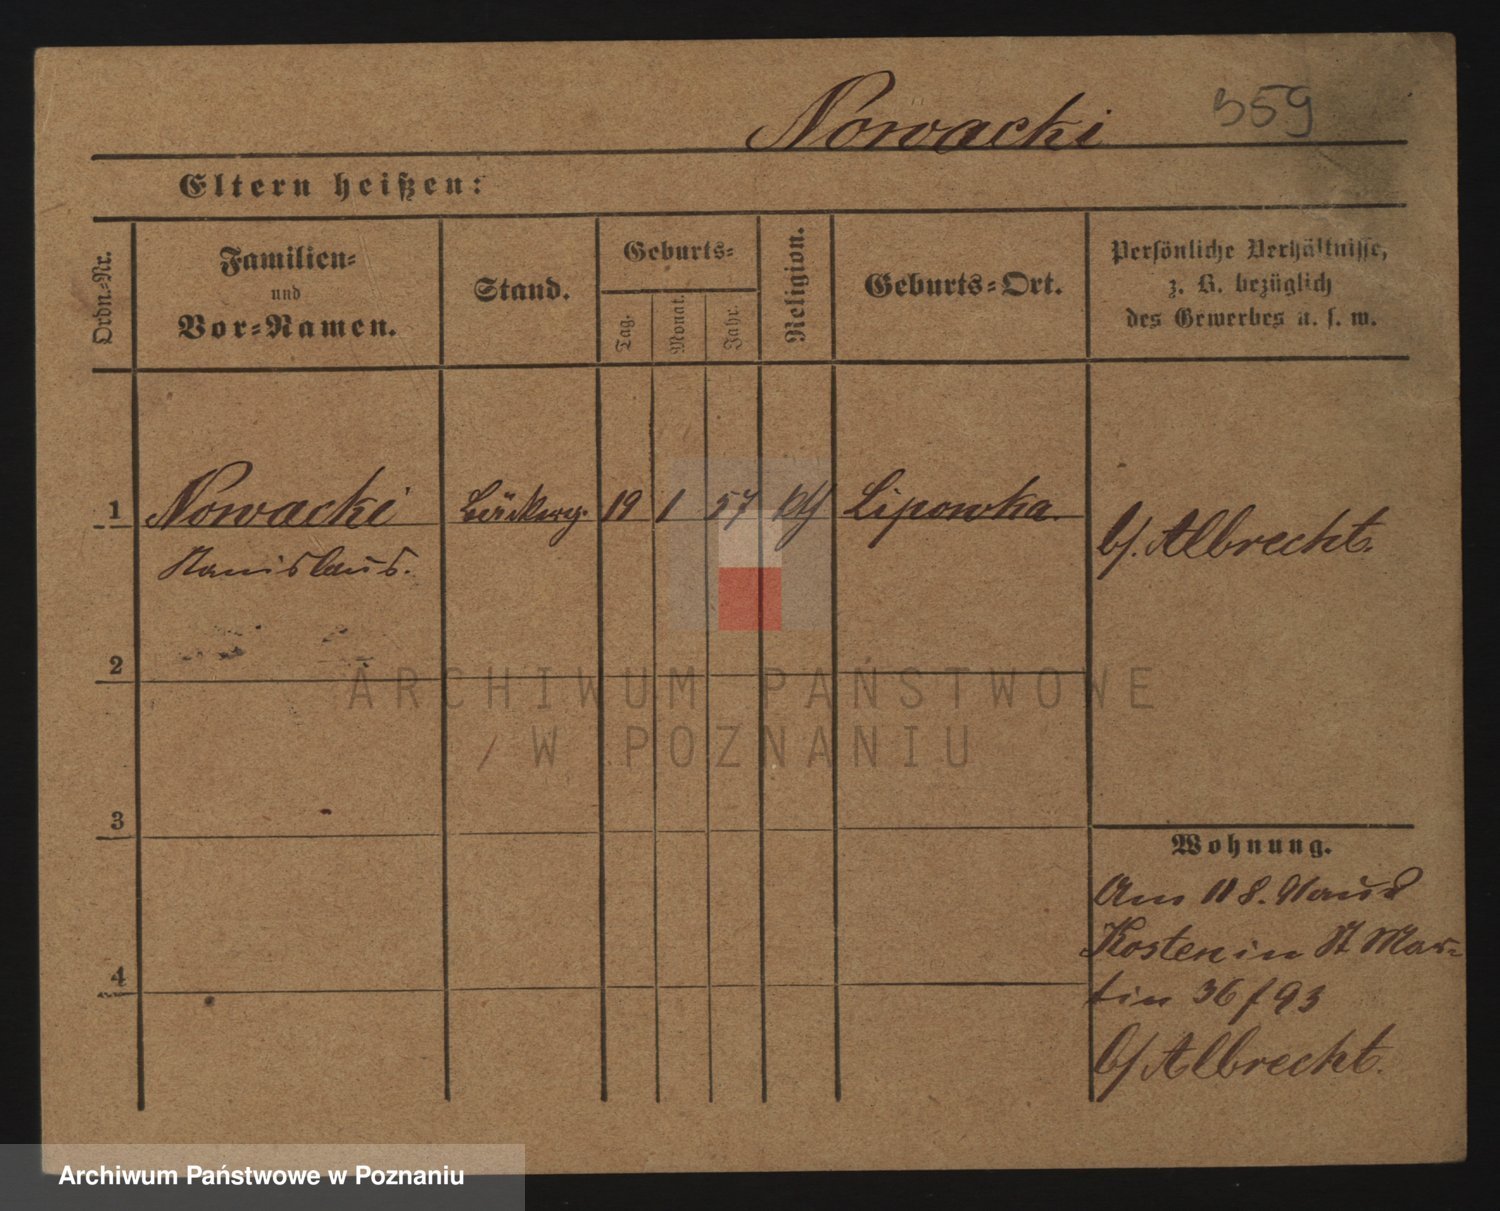 Nowacki 359
Eltern heißen:
Ordn.-Nr.
Familien-
und
Vor-Namen.
Stand.
Geburts-
Tag.
Monat.
Jahr.
Religion.
Geburts-Ort.
Persönliche Verhältnisse,
z. B. bezüglich
des Gewerbes u. s. w.
1 Nowacki 19 1 57 Lipowka.
Stanislaus.
b/. Albrecht.
2
3
4
Wohnung.
Am 11 8. Haus
Kosten in St Mar-
tin 36 f 93
b/ Albrecht.
ARCHIWUM PAŃSTWOWE
W POZNANIU
Archiwum Państwowe w Poznaniu